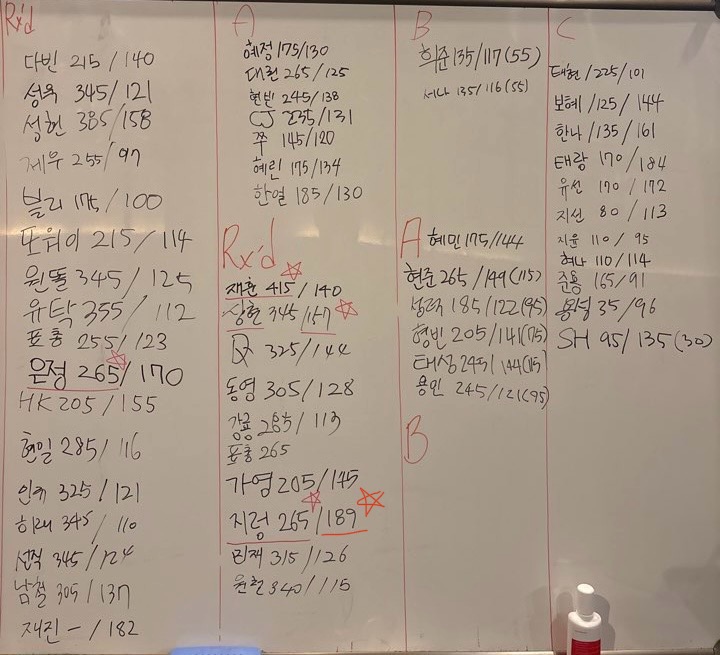 Rx'd
다빈 215/140
성욱 345/121
성헌 385/158
제우 255/97
블리 175/100
포워이 215/114
원돌 345/125
유탁 355/112
표총 255/123
은정 265/170
HK 205/155
현일 285/116
인케 325/121
히래 345/110
선직 345/124
남철 305/137
재진 -/182
A
혜정 175/130
대원 265/125
현빈 245/138
CJ 235/131
쭈 145/120
혜린 175/134
한열 185/130
Rx'd
재환 415/140
상현 345/157
325/144
동영 305/128
강훈 285/113
표총 265
가영 205/145
지령 265/189
민재 315/126
원현 340/115
B
희준 135/117(55)
서나 135/116(55)
A
혜민 175/144
현준 265/199(115)
185/122(95)
형빈 205/141(75)
태상 245/144(115)
용인 245/121(95)
B
C
태현 /225/101
보혜 /125/144
한나 /135/161
태랑 170/184
유선 170/172
지선 80/113
지윤 110/95
혜나 110/114
준용 165/91
용성 35/96
SH 95/135(30)